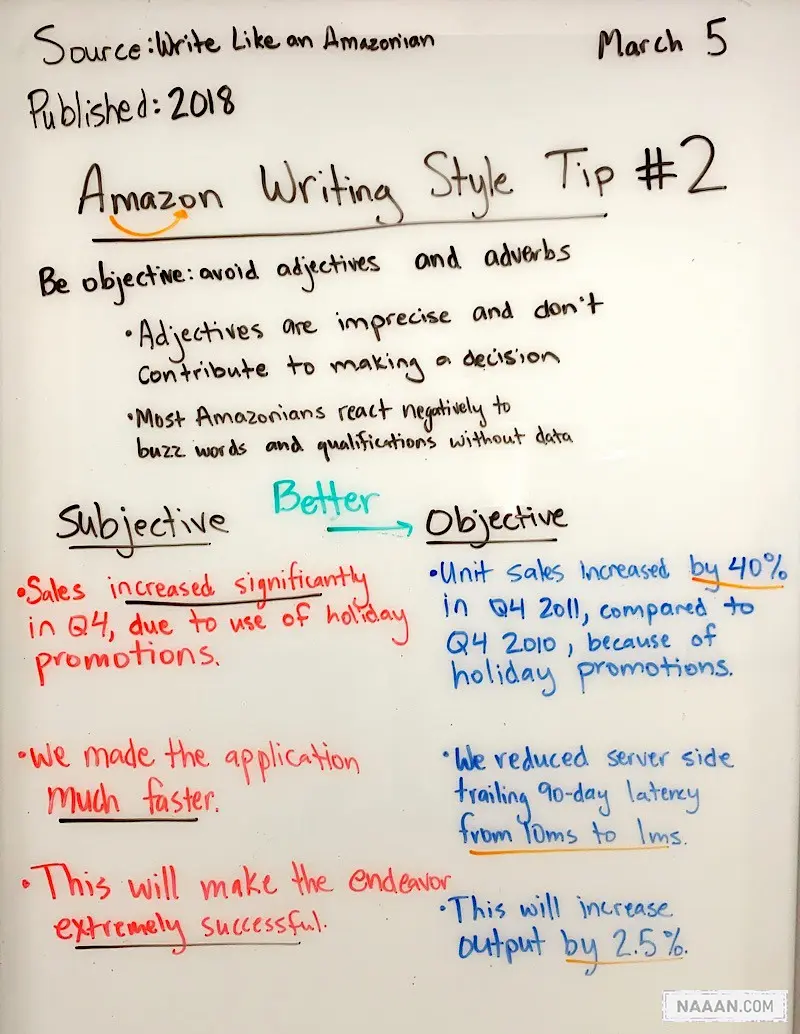 Source: Write Like an Amazonian
March 5
Published: 2018
Amazon Writing Style Tip #2
Be objective: avoid adjectives and adverbs
• Adjectives are imprecise and don't
contribute to making a decision
• Most Amazonians react negatively to
buzz words and qualifications without data
Subjective
Better
Objective
• Sales increased significantly
in Q4, due to use of holiday
promotions.
• Unit sales increased by 40%
in Q4 2011, compared to
Q4 2010, because of
holiday promotions.
• We made the application
much faster.
• We reduced server side
trailing 90-day latency
from 10ms to 1ms.
• This will make the endeavor
extremely successful.
• This will increase
output by 2.5%.
NAAAN.COM